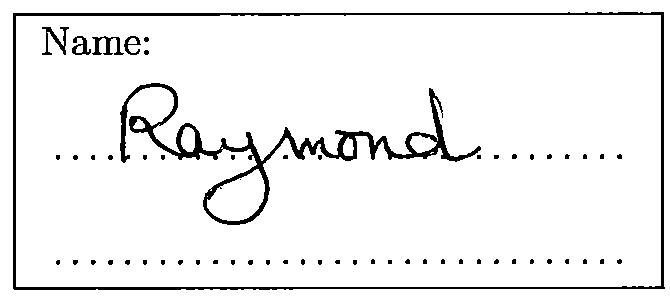 Name:
Raymond